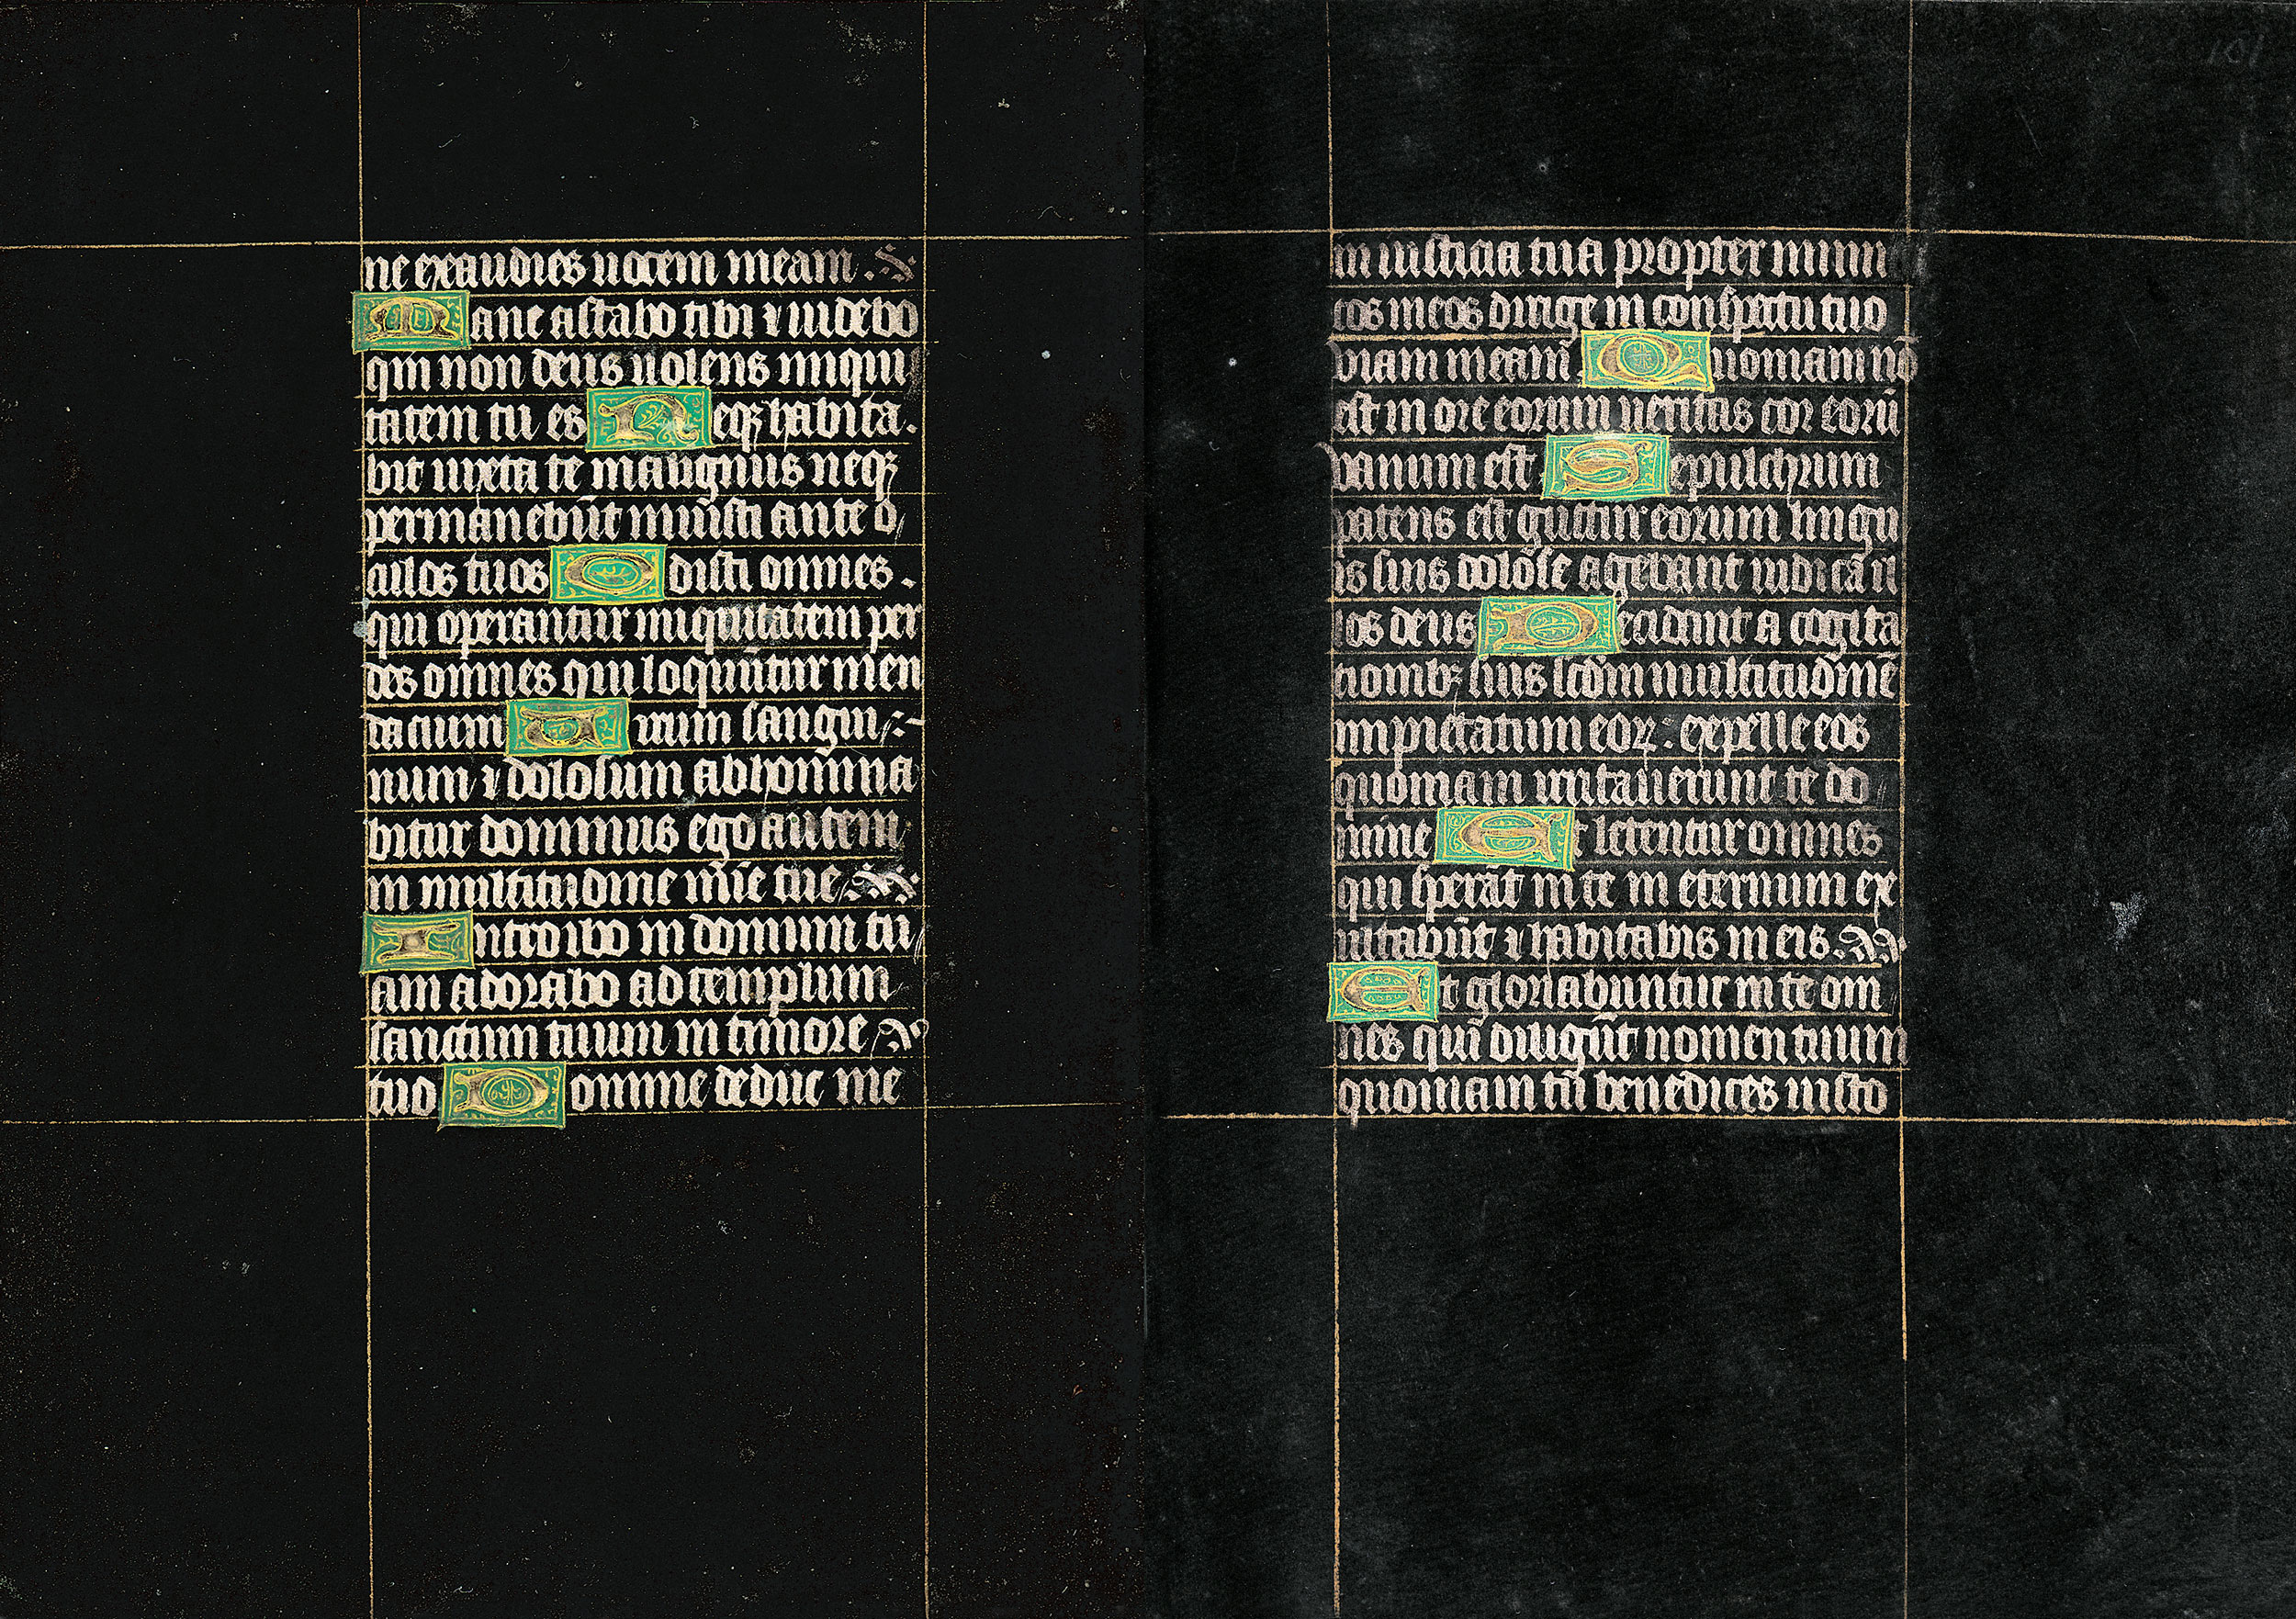 ne exaudies uocem meam
Mane astabo tibi ⁊ uidebo
qm non deus uolens iniqui
tatem tu es Neqꝫ habita.
bit iuxta te malignus neqꝫ
permanebūt iniusti ante o
culos tuos Odisti omnes.
qui operantur iniquitatem per
des omnes qui loquūtur men
dacium Uirum sangui
num ⁊ dolosum abhomina
bitur dominus ego autem
in multitudine mīe tue
Introibo in domum tu
am adorabo ad templum
sanctum tuum in timore
tuo Domine deduc me
in iusticia tua propter inimi
cos meos dirige in conspectu tuo
viam meam Quoniam nō
est in ore eorum ueritas cor eorū
vanum est Sepulchrum
patens est guttur eorum lingu
is suis dolose agebant iudica il
los deus Decidant a cogita
tionibꝫ suis scdm multitudinē
impietatum eoꝝ: expelle eos
quoniam irritauerunt te do
mine Et letentur omnes
qui sperāt in te in eternum ex
ultabūt ⁊ habitabis in eis.
Et gloriabuntur in te om
nes qui diligūt nomen tuum
quoniam tu benedices iusto
101